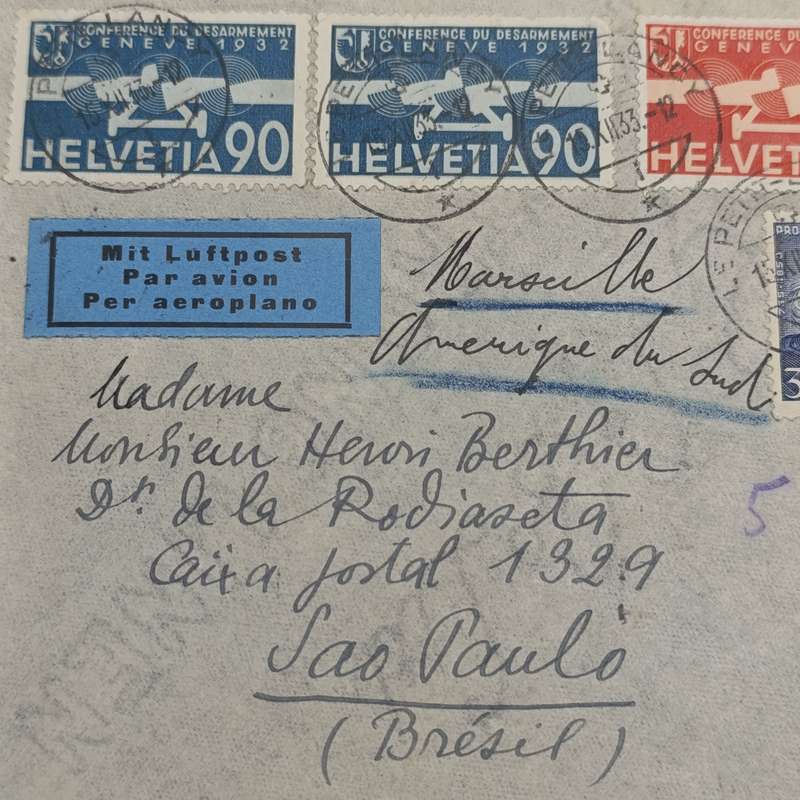 CONFERENCE DU DESARMEMENT
GENEVE 1932
HELVETIA 90
CONFERENCE DU DESARMEMENT
GENEVE 1932
HELVETIA 90
CONFERENCE DU
GENEVE 19
HELVETIA
LE PETIT-LANCY
15.XII.33.-12
PRO
3
Mit Luftpost
Par avion
Per aeroplano
Marseille
Amerique du Sud
Madame
Monsieur Henri Berthier
Dr. de la Rodiaseta
Caïxa postal 1329
Sao Paulo
(Brésil)
5